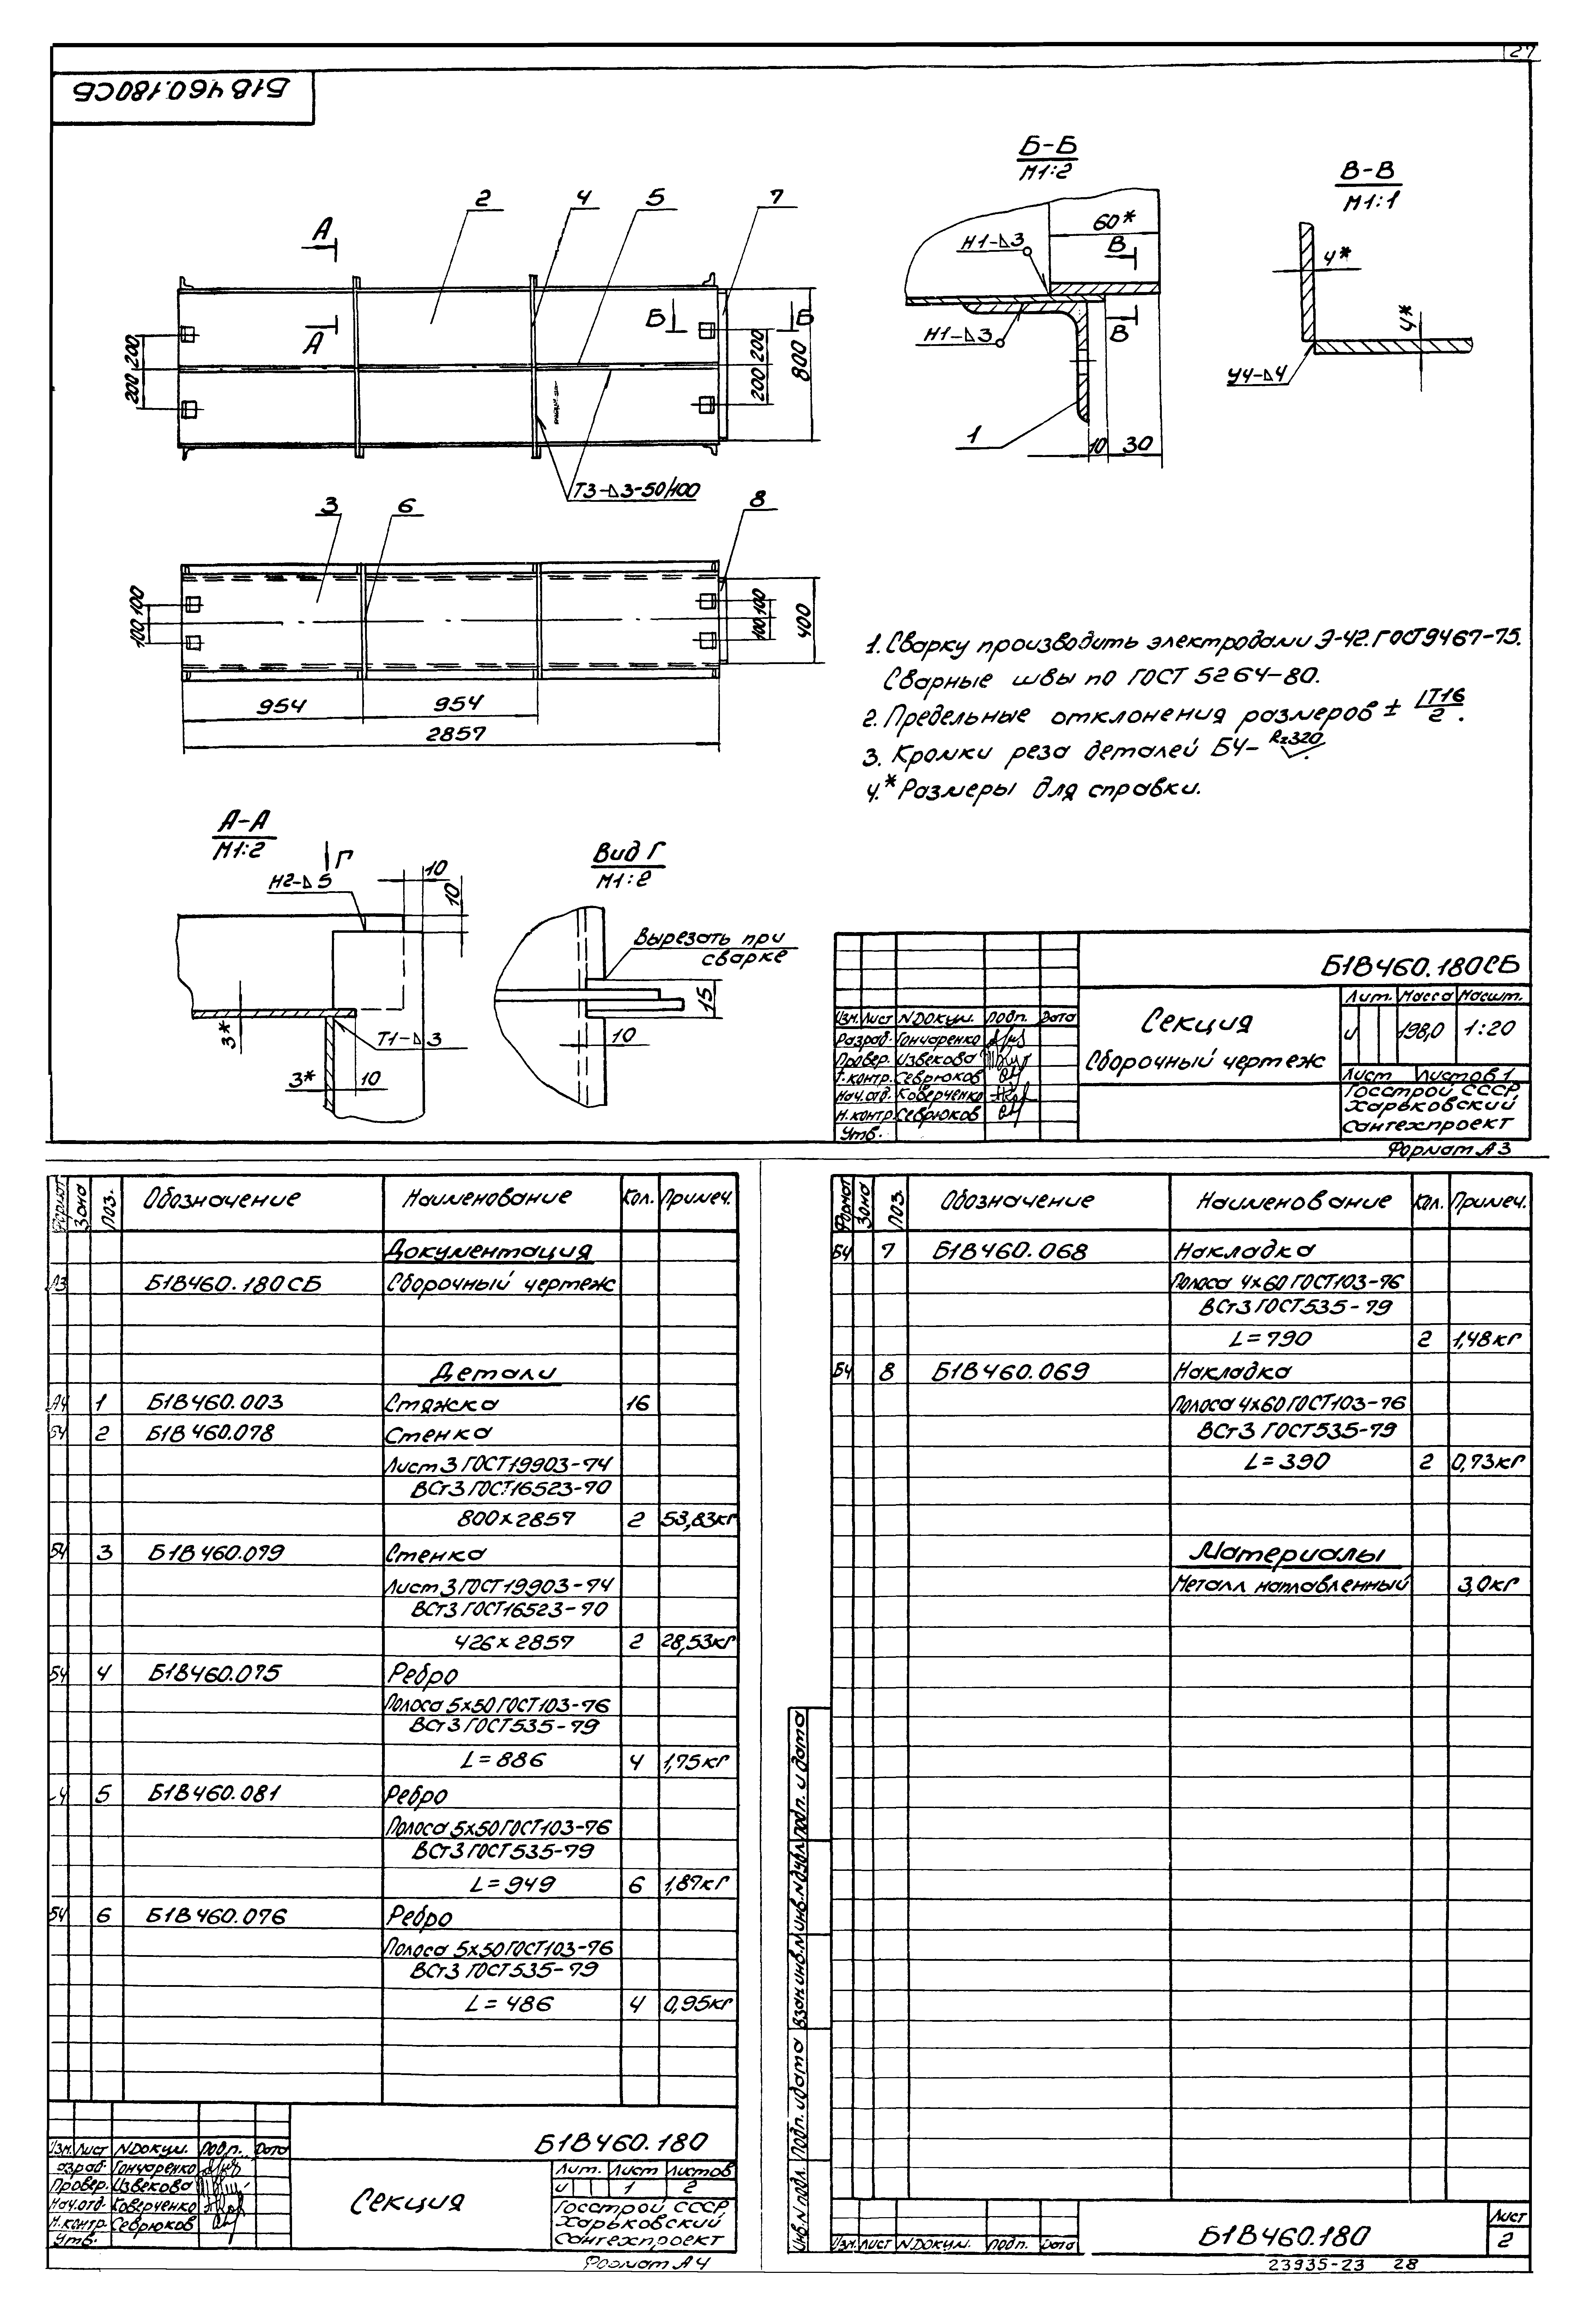 27
Б1В460.180СБ
А
А
2
4
5
7
Б
Б
200
200
200
200
800
Т3-⊿3-50/100
3
6
8
100
100
100
100
400
954
954
2857
Б-Б
М1:2
60*
Н1-⊿3
В
Н1-⊿3
В
1
10
30
В-В
М1:1
4*
4*
У4-⊿4
1. Сварку производить электродами Э-42. ГОСТ 9467-75.
Сварные швы по ГОСТ 5264-80.
2. Предельные отклонения размеров ± IT16/2.
3. Кромки реза деталей БЧ- Rz320.
4.* Размеры для справки.
А-А
М1:2
Г
Н2-⊿5
10
10
3*
Т1-⊿3
3*
10
Вид Г
М1:2
Вырезать при
сварке
15
10
Б1В460.180СБ
Секция
Сборочный чертеж
Лит. Масса Масшт.
И 198,0 1:20
Лист Листов 1
Госстрой СССР
Харьковский
сантехпроект
Изм. Лист N докум. Подп. Дата
Разраб. Гончаренко
Провер. Извекова
Т.контр. Севрюков
Нач.отд. Коверченко
Н.контр. Севрюков
Утв.
Формат А3
Формат Зона Поз. Обозначение Наименование Кол. Примеч.
Документация
А3 Б1В460.180СБ Сборочный чертеж
Детали
А4 1 Б1В460.003 Стяжка 16
БЧ 2 Б1В460.078 Стенка
Лист 3 ГОСТ19903-74
ВСт3 ГОСТ16523-70
800х2857 2 53,83кг
БЧ 3 Б1В460.079 Стенка
Лист 3 ГОСТ19903-74
ВСт3 ГОСТ16523-70
426х2857 2 28,53кг
БЧ 4 Б1В460.075 Ребро
Полоса 5х50 ГОСТ103-76
ВСт3 ГОСТ535-79
L=886 4 1,75кг
Ч 5 Б1В460.081 Ребро
Полоса 5х50 ГОСТ103-76
ВСт3 ГОСТ535-79
L=949 6 1,87кг
БЧ 6 Б1В460.076 Ребро
Полоса 5х50 ГОСТ103-76
ВСт3 ГОСТ535-79
L=486 4 0,95кг
Б1В460.180
Изм. Лист N докум. Подп. Дата
азраб. Гончаренко
Провер. Извекова
Нач.отд. Коверченко
Н.контр. Севрюков
Утв.
Секция
Лит. Лист Листов
И 1 2
Госстрой СССР
Харьковский
сантехпроект
Формат А4
Формат Зона Поз. Обозначение Наименование Кол. Примеч.
БЧ 7 Б1В460.068 Накладка
Полоса 4х60 ГОСТ103-76
ВСт3 ГОСТ535-79
L=790 2 1,48кг
БЧ 8 Б1В460.069 Накладка
Полоса 4х60 ГОСТ103-76
ВСт3 ГОСТ535-79
L=390 2 0,73кг
Материалы
Металл наплавленный 3,0кг
Инв.N подл. Подп. и дата Взам.инв.N Инв.N дубл. Подп. и дата
Изм. Лист N докум. Подп. Дата
Б1В460.180
Лист
2
23935-23 28